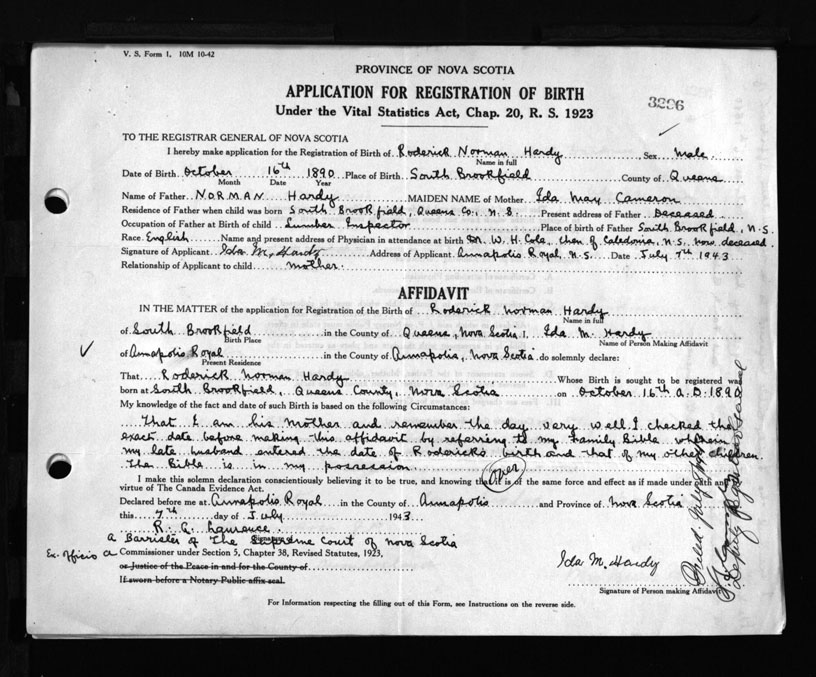 V. S. Form 1. 10M 10-42
PROVINCE OF NOVA SCOTIA
APPLICATION FOR REGISTRATION OF BIRTH
3296
Under the Vital Statistics Act, Chap. 20, R. S. 1923
TO THE REGISTRAR GENERAL OF NOVA SCOTIA
I hereby make application for the Registration of Birth of Roderick Norman Hardy Sex male
Name in full
Date of Birth October 16th 1890 Place of Birth South Brookfield County of Queens
Month Date Year
Name of Father NORMAN Hardy MAIDEN NAME of Mother Ida May Cameron
Residence of Father when child was born South Brookfield, Queens Co., N.S. Present address of Father Deceased
Occupation of Father at Birth of child Lumber Inspector Place of birth of Father South Brookfield, N.S.
Race English Name and present address of Physician in attendance at birth Dr. W. H. Cole, then of Caledonia, N.S. now deceased.
Signature of Applicant Ida M. Hardy Address of Applicant Annapolis Royal N.S. Date July 7th 1943
Relationship of Applicant to child mother.
AFFIDAVIT
IN THE MATTER of the application for Registration of the Birth of Roderick Norman Hardy
Name in full
of South Brookfield in the County of Queens, Nova Scotia I. Ida M. Hardy
Birth Place Name of Person Making Affidavit
of Annapolis Royal in the County of Annapolis, Nova Scotia do solemnly declare:
Present Residence
That Roderick Norman Hardy Whose Birth is sought to be registered was
born at South Brookfield, Queens County, Nova Scotia on October 16th A.D. 1890
My knowledge of the fact and date of such Birth is based on the following Circumstances:
That I am his mother and remember the day very well. I checked the
exact date before making this affidavit by referring to my Family Bible wherein
my late husband entered the date of Roderick's birth and that of my other children.
The Bible is in my possession
over
I make this solemn declaration conscientiously believing it to be true, and knowing that it is of the same force and effect as if made under oath and
virtue of The Canada Evidence Act.
Declared before me at Annapolis Royal in the County of Annapolis and Province of Nova Scotia
this 7th day of July 1943
R. C. Laurence
A Barrister of The Supreme Court of Nova Scotia
Ex officio a Commissioner under Section 5, Chapter 38, Revised Statutes, 1923,
or Justice of the Peace in and for the County of
If sworn before a Notary Public affix seal.
Ida M. Hardy
Signature of Person making Affidavit
For Information respecting the filling out of this Form, see Instructions on the reverse side.